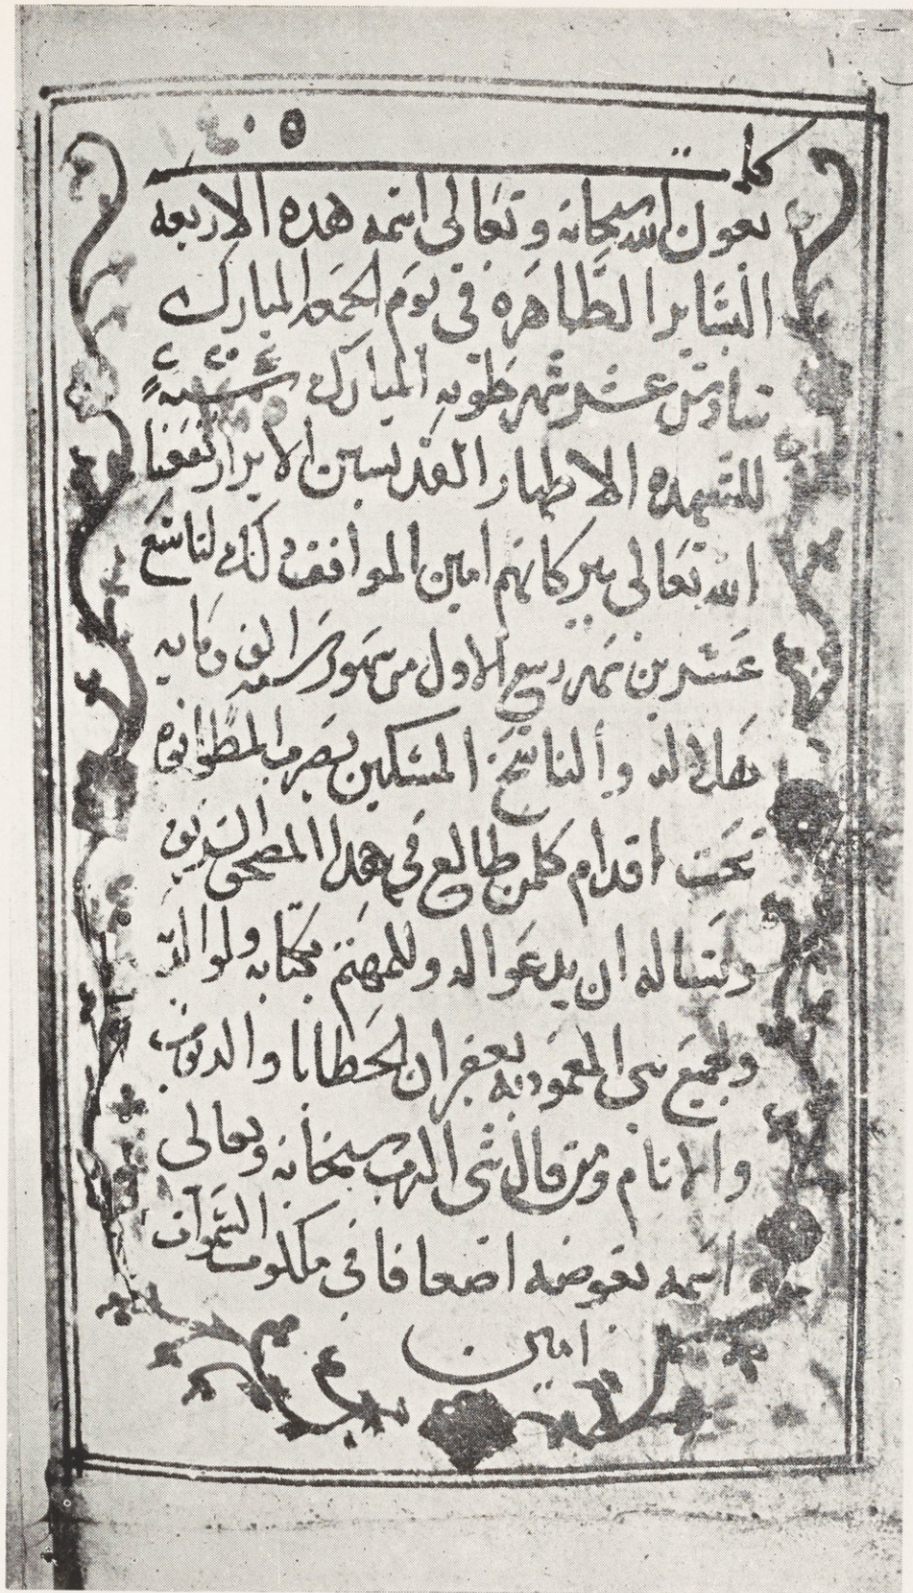 كملت
بعون الله سبحانه وتعالى اسمه هده الاربعه
البشاير الطاهره في يوم الجمعه المبارك
سادس عشر شهر طوبه المبارك سنة
للشهده الاطهار القديسين الابرار نفعنا
الله تعالى ببركاتهم امين الموافق دلك لتاسع
عشرين شهر ربيع الاول من شهور سنة الف ومايه
هلاليه والناسخ المسكين يضرب المطانوه
تحت اقدام كلمن طالع في هدا المصحف الشريف
ويساله ان يدعوا له وللمهتم بكتابه ولوالديه
ولجميع بني المعموديه بغفران الخطايا والدنوب
والاتام ومن قال شي الرب سبحانه وتعالى
اسمه يعوضه اضعافا في ملكوت السموات
امين